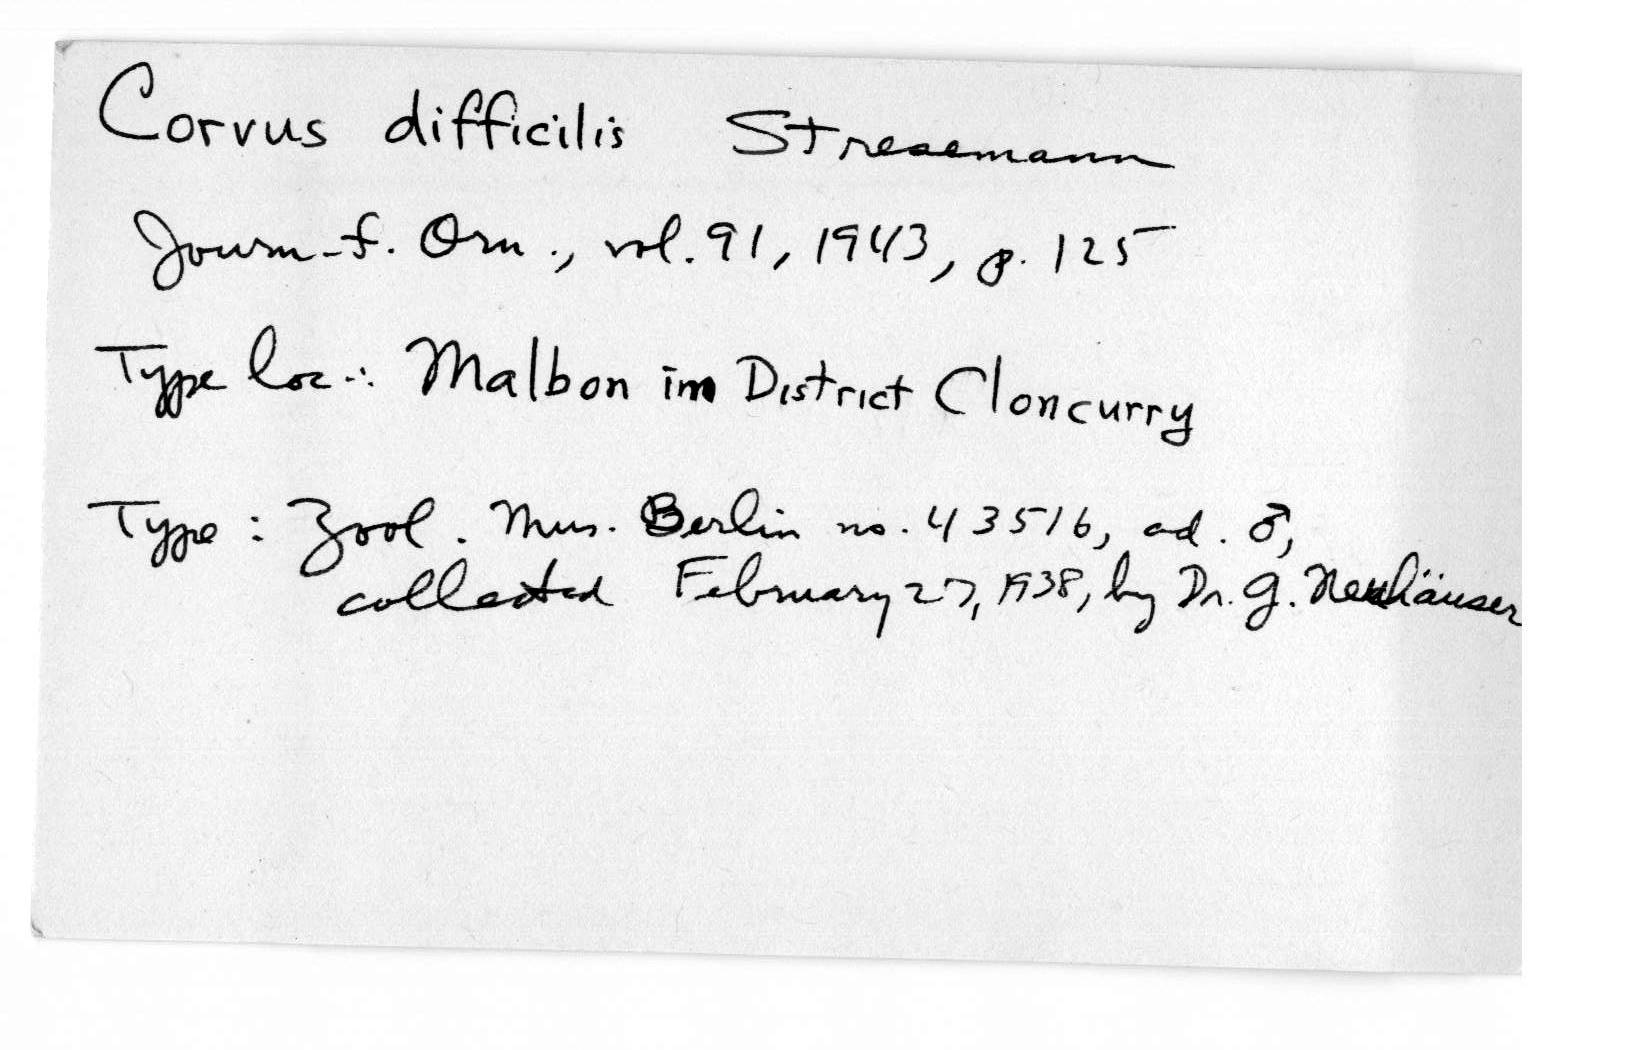 Corvus difficilis Stresemann
Journ. f. Orn., vol. 91, 1943, p. 125
Type loc.: Malbon im District Cloncurry
Type: Zool. Mus. Berlin no. 43516, ad. ♂,
collected February 27, 1938, by Dr. G. Neuhäuser